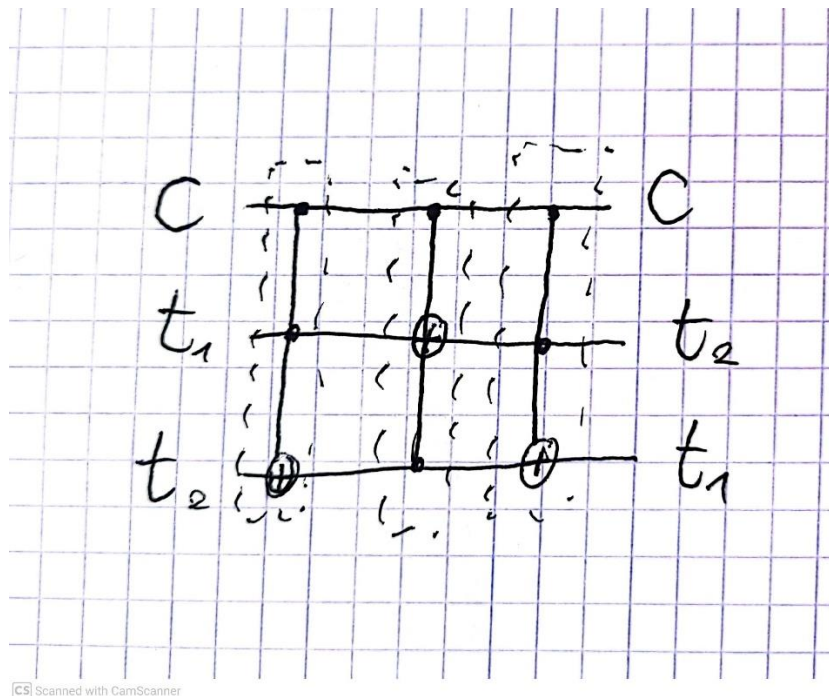 C C
t₁ t₂
t₂ t₁
CS Scanned with CamScanner